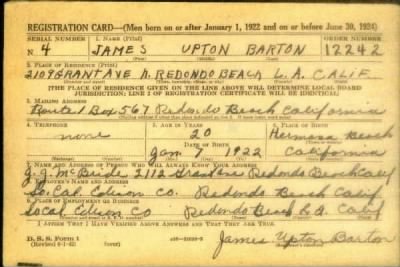 REGISTRATION CARD—(Men born on or after January 1, 1922 and on or before June 30, 1924)
SERIAL NUMBER 1. NAME (Print) ORDER NUMBER
N 4 JAMES UPTON BARTON 12242
(First) (Middle) (Last)
2. PLACE OF RESIDENCE (Print)
2109 GRANT AVE N. REDONDO BEACH L.A. CALIF
[THE PLACE OF RESIDENCE GIVEN ON THE LINE ABOVE WILL DETERMINE LOCAL BOARD
JURISDICTION; LINE 2 OF REGISTRATION CERTIFICATE WILL BE IDENTICAL]
3. MAILING ADDRESS
Route 1 Box 567 Redondo Beach California
4. TELEPHONE 5. AGE IN YEARS 6. PLACE OF BIRTH
none 20 Hermosa Beach
DATE OF BIRTH
Jan 7 1922 California
7. NAME AND ADDRESS OF PERSON WHO WILL ALWAYS KNOW YOUR ADDRESS
J.J. McBride 2112 Grant Ave Redondo Beach Calif
8. EMPLOYER'S NAME AND ADDRESS
So. Cal. Edison Co. Redondo Beach Calif
9. PLACE OF EMPLOYMENT OR BUSINESS
So Cal Edison Co Redondo Beach L.A. Calif
I AFFIRM THAT I HAVE VERIFIED ABOVE ANSWERS AND THAT THEY ARE TRUE.
D. S. S. Form 1
James Upton Barton